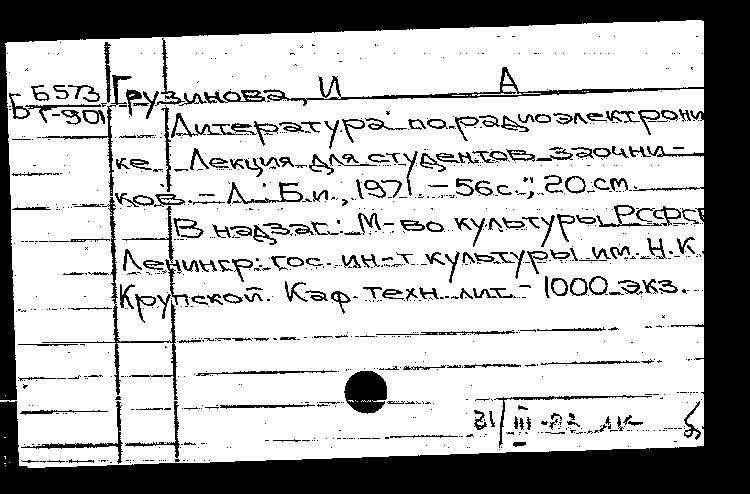 Б573 Грузинова, И А
Г-901
Литература по радиоэлектрони
ке. Лекция для студентов заочни-
ков. - Л.: Б.и., 1971. - 56с.; 20 см.
В надзаг.: М-во культуры РСФСР
Ленингр. гос. ин-т культуры им. Н.К.
Крупской. Каф. техн. лит. - 1000 экз.
81 III-82 ЛК